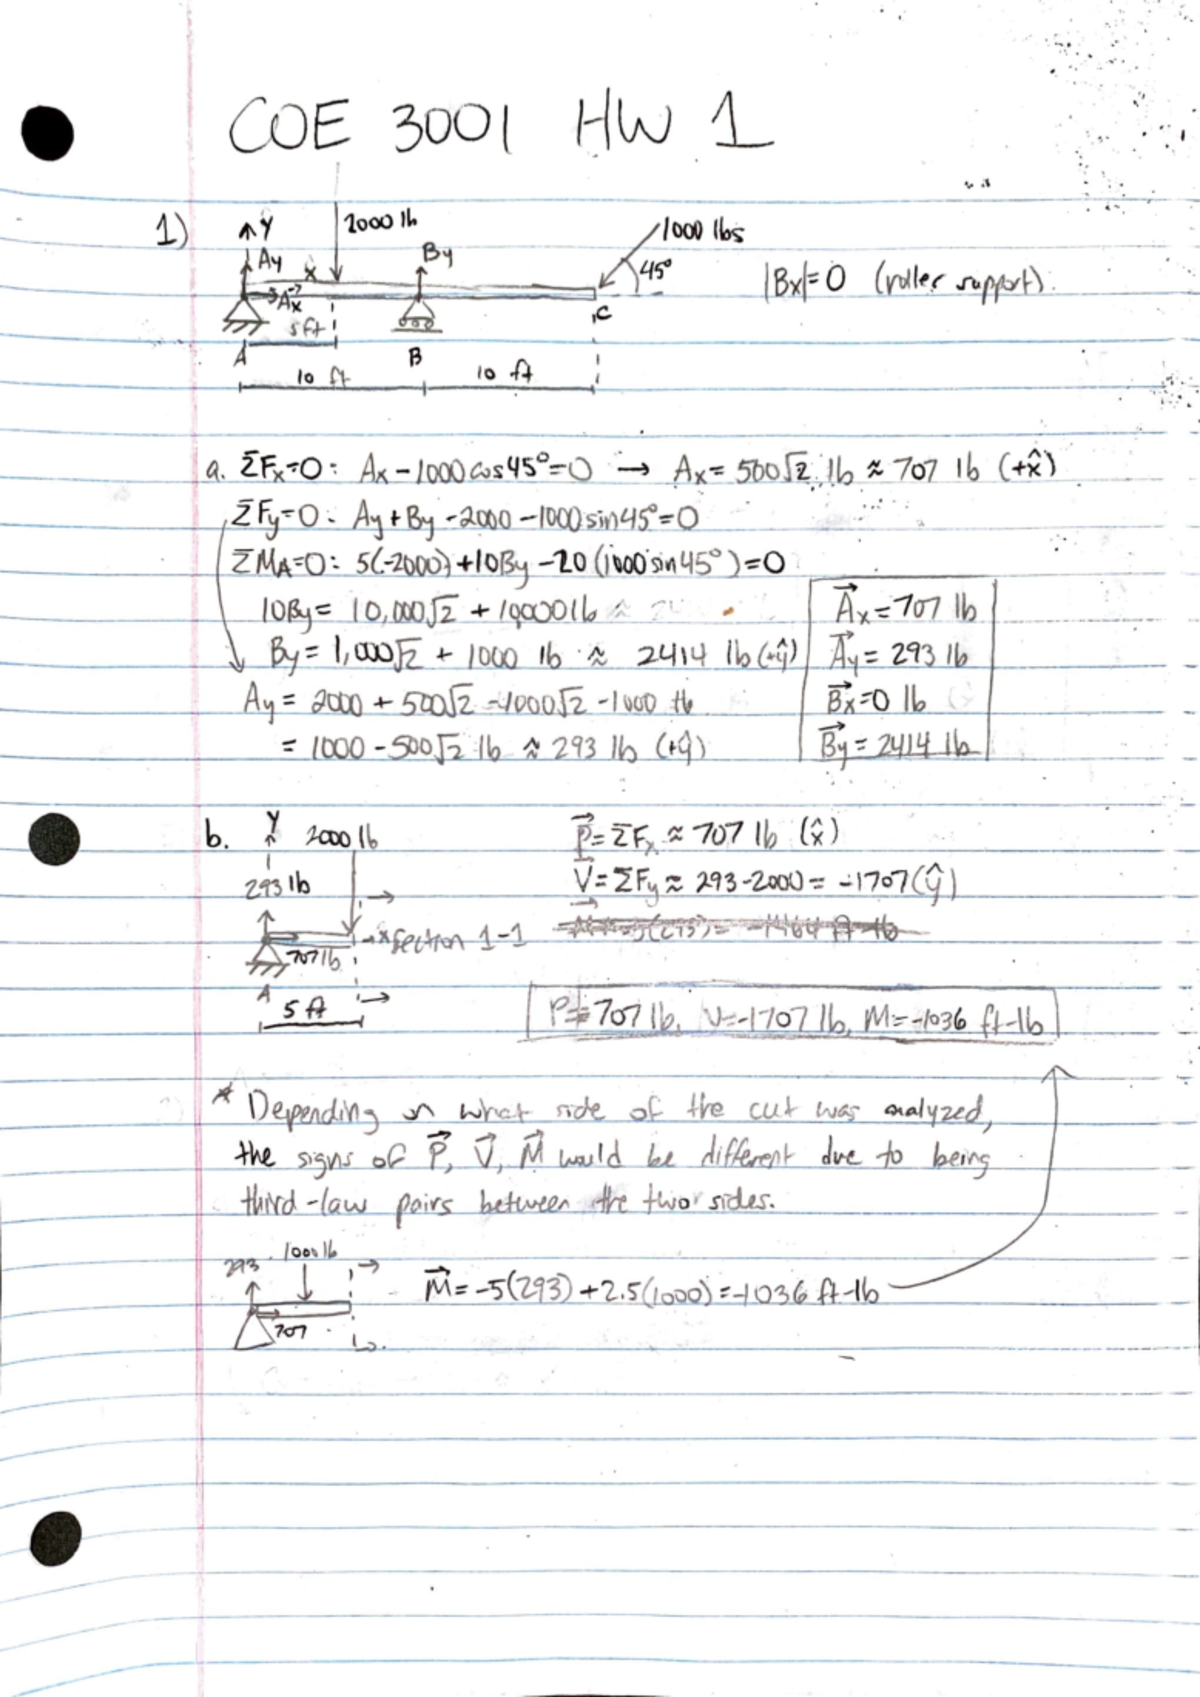 COE 3001 HW 1
1)
Y
2000 lb
1000 lbs
Ay
By
x
45°
|Bx|=0 (roller support).
Ax
5ft
C
A
B
10 ft
10 ft
a. ΣFx=0: Ax-1000cos45°=0 → Ax= 500√2 lb ≈ 707 lb (+x̂)
ΣFy=0: Ay+By-2000-1000sin45°=0
ΣMA=0: 5(-2000)+10By-20(1000sin45°)=0
10By= 10,000√2 + 10,000 lb
By= 1,000√2 + 1000 lb ≈ 2414 lb (+ŷ)
Ay= 2000 + 500√2 -1000√2 -1000 lb
= 1000-500√2 lb ≈ 293 lb (+ŷ)
Ax=707 lb
Ay= 293 lb
Bx=0 lb
By= 2414 lb
b.
Y
2000 lb
P=ΣFx ≈ 707 lb (x̂)
293 lb
V=ΣFy≈ 293-2000= -1707(ŷ)
x Section 1-1
707 lb
A
5 ft
P= 707 lb, V=-1707 lb, M=-1036 ft-lb
* Depending on what side of the cut was analyzed,
the signs of P, V, M would be different due to being
third-law pairs between the two sides.
293
1000 lb
M= -5(293)+2.5(1000)=-1036 ft-lb
707